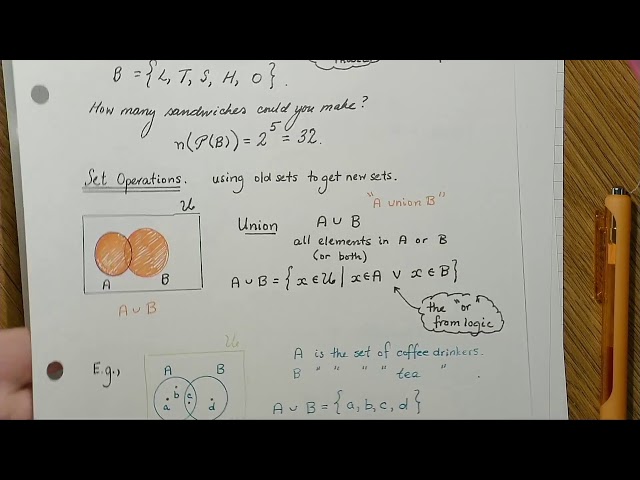 B = {L, T, S, H, O}.
How many sandwiches could you make?
n(P(B)) = 2^5 = 32.
Set Operations. using old sets to get new sets.
U
"A union B"
Union A ∪ B
all elements in A or B
(or both)
A B
A ∪ B = {x ∈ U | x ∈ A ∨ x ∈ B}
A ∪ B
the "or"
from logic
U
E.g.,
A is the set of coffee drinkers.
B " " " " tea " .
A B
a b c d
A ∪ B = {a, b, c, d}